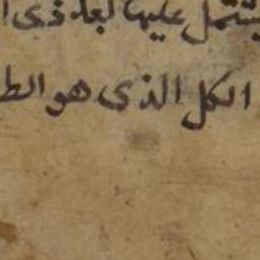 يشتمل عليها لعله فى ا
الكل الذى هو الط